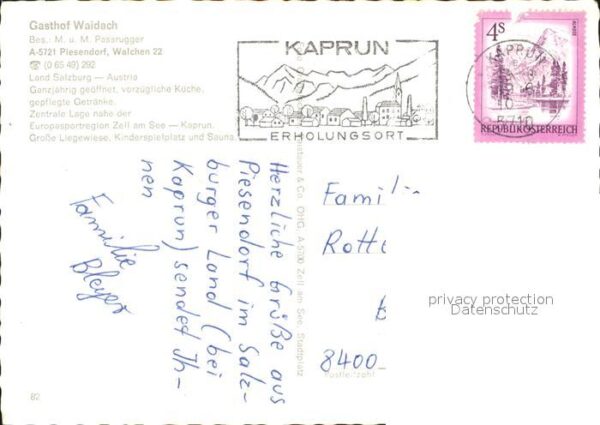 Gasthof Waidach
Bes.: M. u. M. Passrugger
A-5721 Piesendorf, Walchen 22
☎ (0 65 49) 292
Land Salzburg — Austria
Ganzjährig geöffnet, vorzügliche Küche,
gepflegte Getränke.
Zentrale Lage nahe der
Europasportregion Zell am See — Kaprun.
Große Liegewiese, Kinderspielplatz und Sauna
KAPRUN
ERHOLUNGSORT
4S
REPUBLIK ÖSTERREICH
KAPRUN
5710
& Co. OHG, A-5700 Zell am See, Stadtplatz
Herzliche Grüße aus
Piesendorf im Salz-
burger Land (bei
Kaprun) sendet Ih-
nen
Familie
Bleyer
Famili
Rott
8400
Postleitzahl
privacy protection
Datenschutz
82